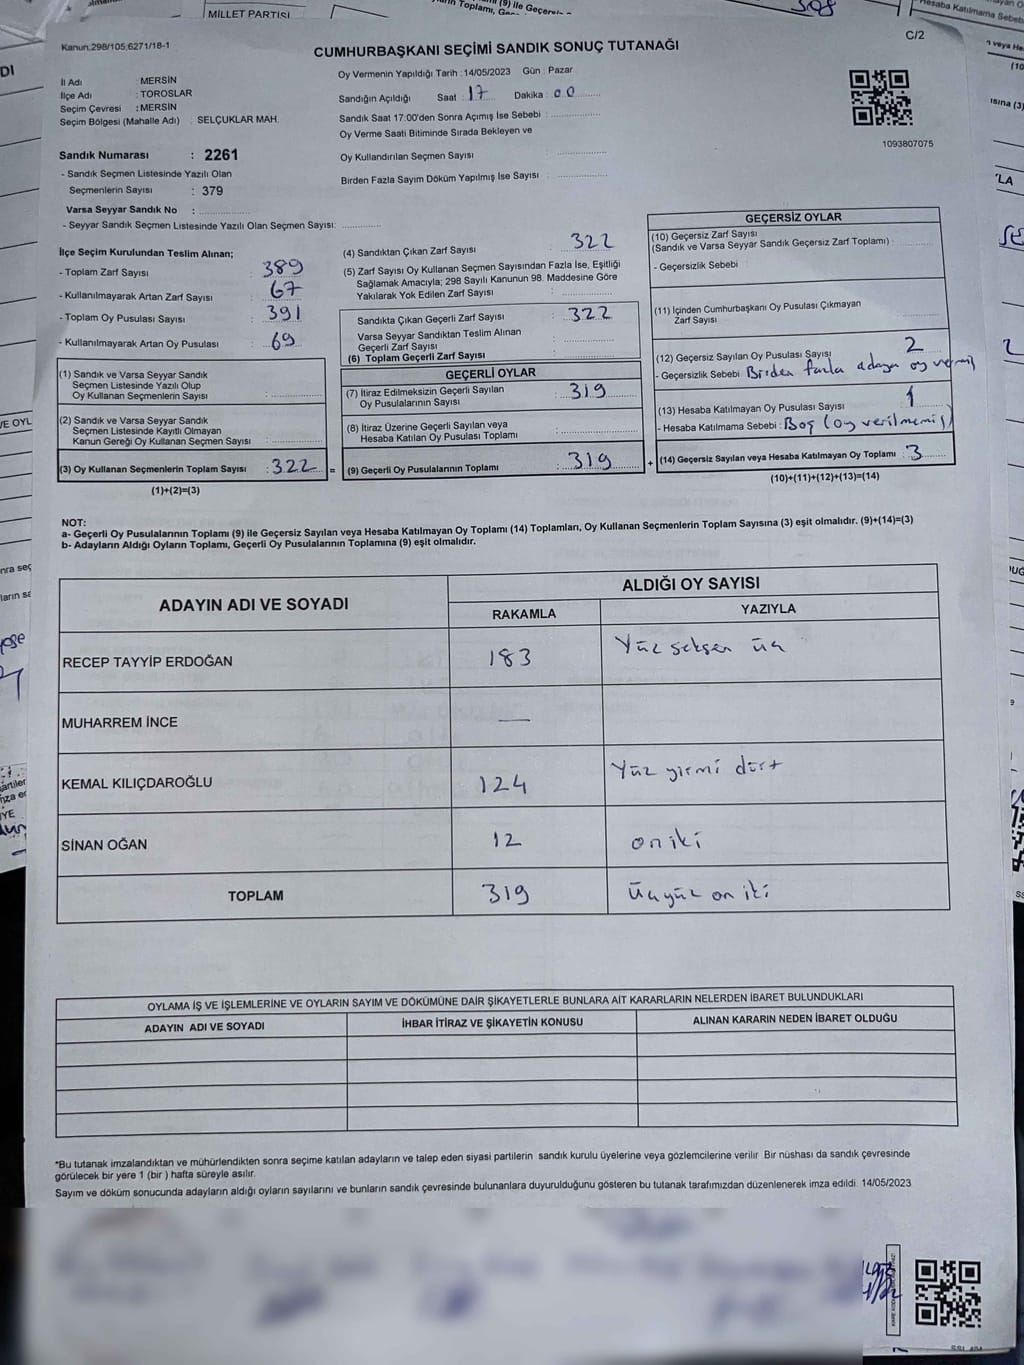 MİLLET PARTİSİ
Kanun:298/105;6271/18-1
C/2
CUMHURBAŞKANI SEÇİMİ SANDIK SONUÇ TUTANAĞI
İl Adı : MERSİN
İlçe Adı : TOROSLAR
Seçim Çevresi : MERSİN
Seçim Bölgesi (Mahalle Adı) : SELÇUKLAR MAH.
Oy Vermenin Yapıldığı Tarih : 14/05/2023 Gün : Pazar
Sandığın Açıldığı Saat : 17 Dakika : 00
Sandık Saat 17:00'den Sonra Açımış İse Sebebi :
Oy Verme Saati Bitiminde Sırada Bekleyen ve
Oy Kullandırılan Seçmen Sayısı :
Birden Fazla Sayım Döküm Yapılmış İse Sayısı :
1093807075
Sandık Numarası : 2261
- Sandık Seçmen Listesinde Yazılı Olan
Seçmenlerin Sayısı : 379
Varsa Seyyar Sandık No :
- Seyyar Sandık Seçmen Listesinde Yazılı Olan Seçmen Sayısı:
İlçe Seçim Kurulundan Teslim Alınan;
- Toplam Zarf Sayısı : 389
- Kullanılmayarak Artan Zarf Sayısı : 67
- Toplam Oy Pusulası Sayısı : 391
- Kullanılmayarak Artan Oy Pusulası : 69
(1) Sandık ve Varsa Seyyar Sandık
Seçmen Listesinde Yazılı Olup
Oy Kullanan Seçmenlerin Sayısı :
(2) Sandık ve Varsa Seyyar Sandık
Seçmen Listesinde Kayıtlı Olmayan
Kanun Gereği Oy Kullanan Seçmen Sayısı :
(3) Oy Kullanan Seçmenlerin Toplam Sayısı : 322 =
(1)+(2)=(3)
(4) Sandıktan Çıkan Zarf Sayısı : 322
(5) Zarf Sayısı Oy Kullanan Seçmen Sayısından Fazla İse, Eşitliği
Sağlamak Amacıyla; 298 Sayılı Kanunun 98. Maddesine Göre
Yakılarak Yok Edilen Zarf Sayısı :
Sandıkta Çıkan Geçerli Zarf Sayısı : 322
Varsa Seyyar Sandıktan Teslim Alınan
Geçerli Zarf Sayısı :
(6) Toplam Geçerli Zarf Sayısı :
GEÇERLİ OYLAR
(7) İtiraz Edilmeksizin Geçerli Sayılan
Oy Pusulalarının Sayısı : 319
(8) İtiraz Üzerine Geçerli Sayılan veya
Hesaba Katılan Oy Pusulası Toplamı :
(9) Geçerli Oy Pusulalarının Toplamı : 319 +
GEÇERSİZ OYLAR
(10) Geçersiz Zarf Sayısı
(Sandık ve Varsa Seyyar Sandık Geçersiz Zarf Toplamı) :
- Geçersizlik Sebebi :
(11) İçinden Cumhurbaşkanı Oy Pusulası Çıkmayan
Zarf Sayısı :
(12) Geçersiz Sayılan Oy Pusulası Sayısı : 2
- Geçersizlik Sebebi : Birden fazla adaya oy vermiş
(13) Hesaba Katılmayan Oy Pusulası Sayısı : 1
- Hesaba Katılmama Sebebi : Boş (oy verilmemiş)
(14) Geçersiz Sayılan veya Hesaba Katılmayan Oy Toplamı : 3
(10)+(11)+(12)+(13)=(14)
NOT:
a- Geçerli Oy Pusulalarının Toplamı (9) ile Geçersiz Sayılan veya Hesaba Katılmayan Oy Toplamı (14) Toplamları, Oy Kullanan Seçmenlerin Toplam Sayısına (3) eşit olmalıdır. (9)+(14)=(3)
b- Adayların Aldığı Oyların Toplamı, Geçerli Oy Pusulalarının Toplamına (9) eşit olmalıdır.
ADAYIN ADI VE SOYADI ALDIĞI OY SAYISI
RAKAMLA YAZIYLA
RECEP TAYYİP ERDOĞAN 183 Yüz seksen üç
MUHARREM İNCE —
KEMAL KILIÇDAROĞLU 124 Yüz yirmi dört
SİNAN OĞAN 12 on iki
TOPLAM 319 Üçyüz on iki
OYLAMA İŞ VE İŞLEMLERİNE VE OYLARIN SAYIM VE DÖKÜMÜNE DAİR ŞİKAYETLERLE BUNLARA AİT KARARLARIN NELERDEN İBARET BULUNDUKLARI
ADAYIN ADI VE SOYADI İHBAR İTİRAZ VE ŞİKAYETİN KONUSU ALINAN KARARIN NEDEN İBARET OLDUĞU
*Bu tutanak imzalandıktan ve mühürlendikten sonra seçime katılan adayların ve talep eden siyasi partilerin sandık kurulu üyelerine veya gözlemcilerine verilir Bir nüshası da sandık çevresinde
görülecek bir yere 1 (bir ) hafta süreyle asılır.
Sayım ve döküm sonucunda adayların aldığı oyların sayılarını ve bunların sandık çevresinde bulunanlara duyurulduğunu gösteren bu tutanak tarafımızdan düzenlenerek imza edildi. 14/05/2023